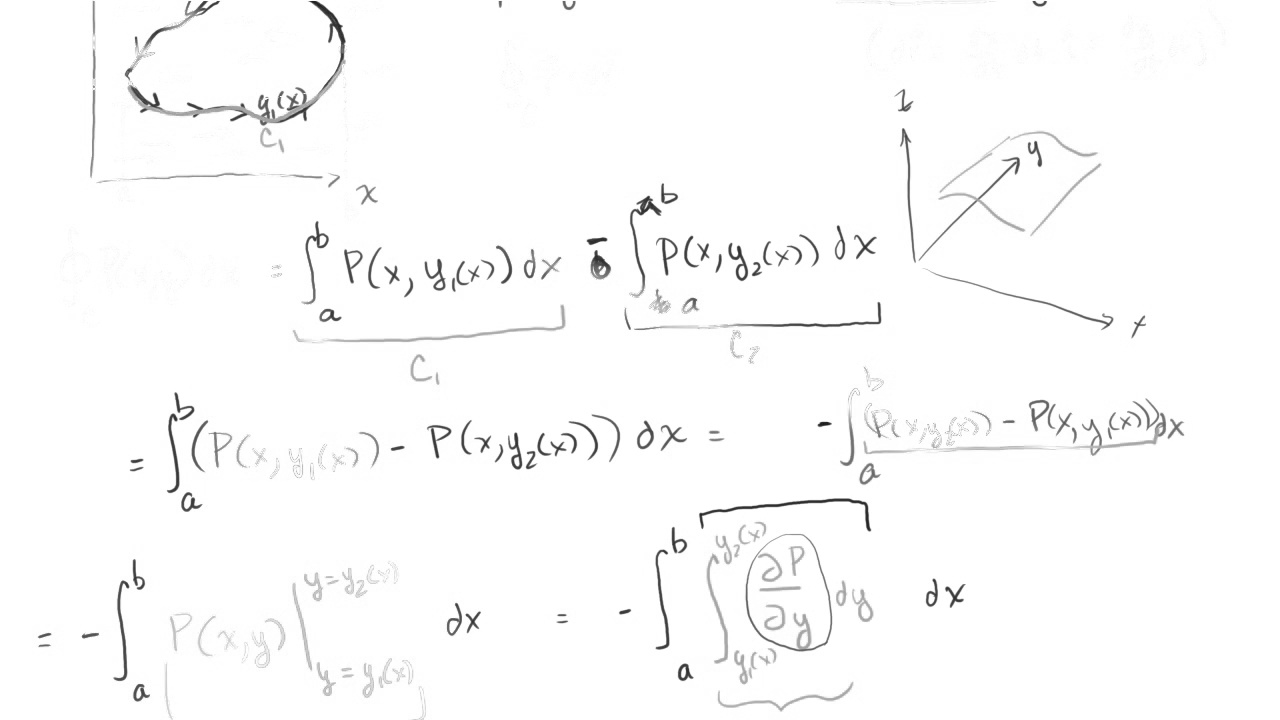 y₁(x)
C₁
x
z
y
x
= ∫ₐᵇ P(x, y₁(x)) dx - ∫ₐᵇ P(x, y₂(x)) dx
C₁ C₂
= ∫ₐᵇ (P(x, y₁(x)) - P(x, y₂(x))) dx = - ∫ₐᵇ (P(x, y₂(x)) - P(x, y₁(x))) dx
= - ∫ₐᵇ P(x, y) |_{y = y₁(x)}^{y = y₂(x)} dx = - ∫ₐᵇ ∫_{y₁(x)}^{y₂(x)} ∂P/∂y dy dx